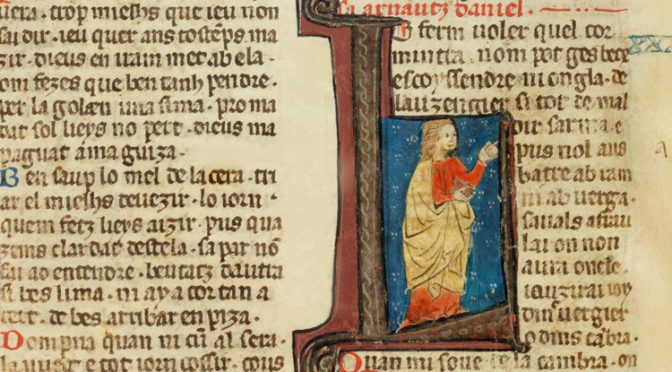 uera. trop miellis que ieu non
sai dir. ieu quer ans tostēps ma
zir. dieus en iram met ab ela.
om fezes que ben tanh pendre.
per la golaen una sima. pro ma
dat sol lieys no pert. dieus ma
paguat a ma guiza.
Ben saup lo mel de la cera. tri
ar el miellis deuezir. lo iorn
quem fetz lieys aizir. pus qua
zems clardat destela. sa par nō
sai ao entendre. beutatz dautra
si bes lima. ni ay a cor tan a
cert. de bes arribar en piza.
Dompna quan ni cū al sera.
la nueg e tot iorn cossir. cous
sa arnautz daniel.
Lo ferm uoler quel cor
mintra. nom pot ges becx
escoyssendre ni ongla. de
lauzengier si tot de mal
dir sarma. e
pus nol aus
batre ab ram
ni ab uerga.
sauals afrau
lai on non
aura oncle.
iauzirai ioy
dins uergier
o dins cābra.
Quan mi soue de la cambra. on